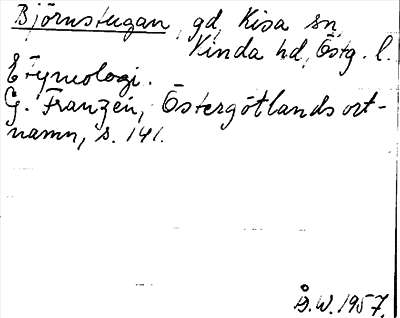 Björnstugan, gd, Kisa sn,
Kinda hd, Östg. l.
Etymologi.
G. Franzén, Östergötlands ort-
namn, s. 141.
Å.W. 1957.